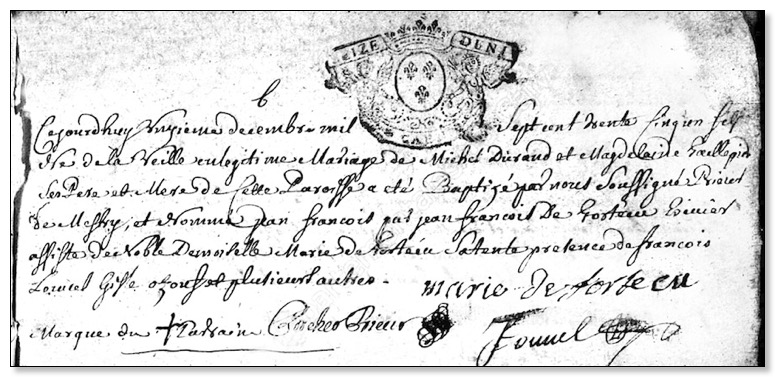 SEIZE DEN
b
Cejourdhuy Unzieme decembre mil Sept cent trente Cinq un fils
Née de la Veille en legitime Mariage de Michel Durand et Magdeleine
Ses Pere et Mere de Cette Paroisse a eté Baptizé par nous Soussigné Prieur
de Mestry, et Nommé jean francois par jean francois De
assisté de Noble Demoiselle Marie de Sa tente presence de francois
et plusieurs autres.
marie de
Marque du + Parain Prieur